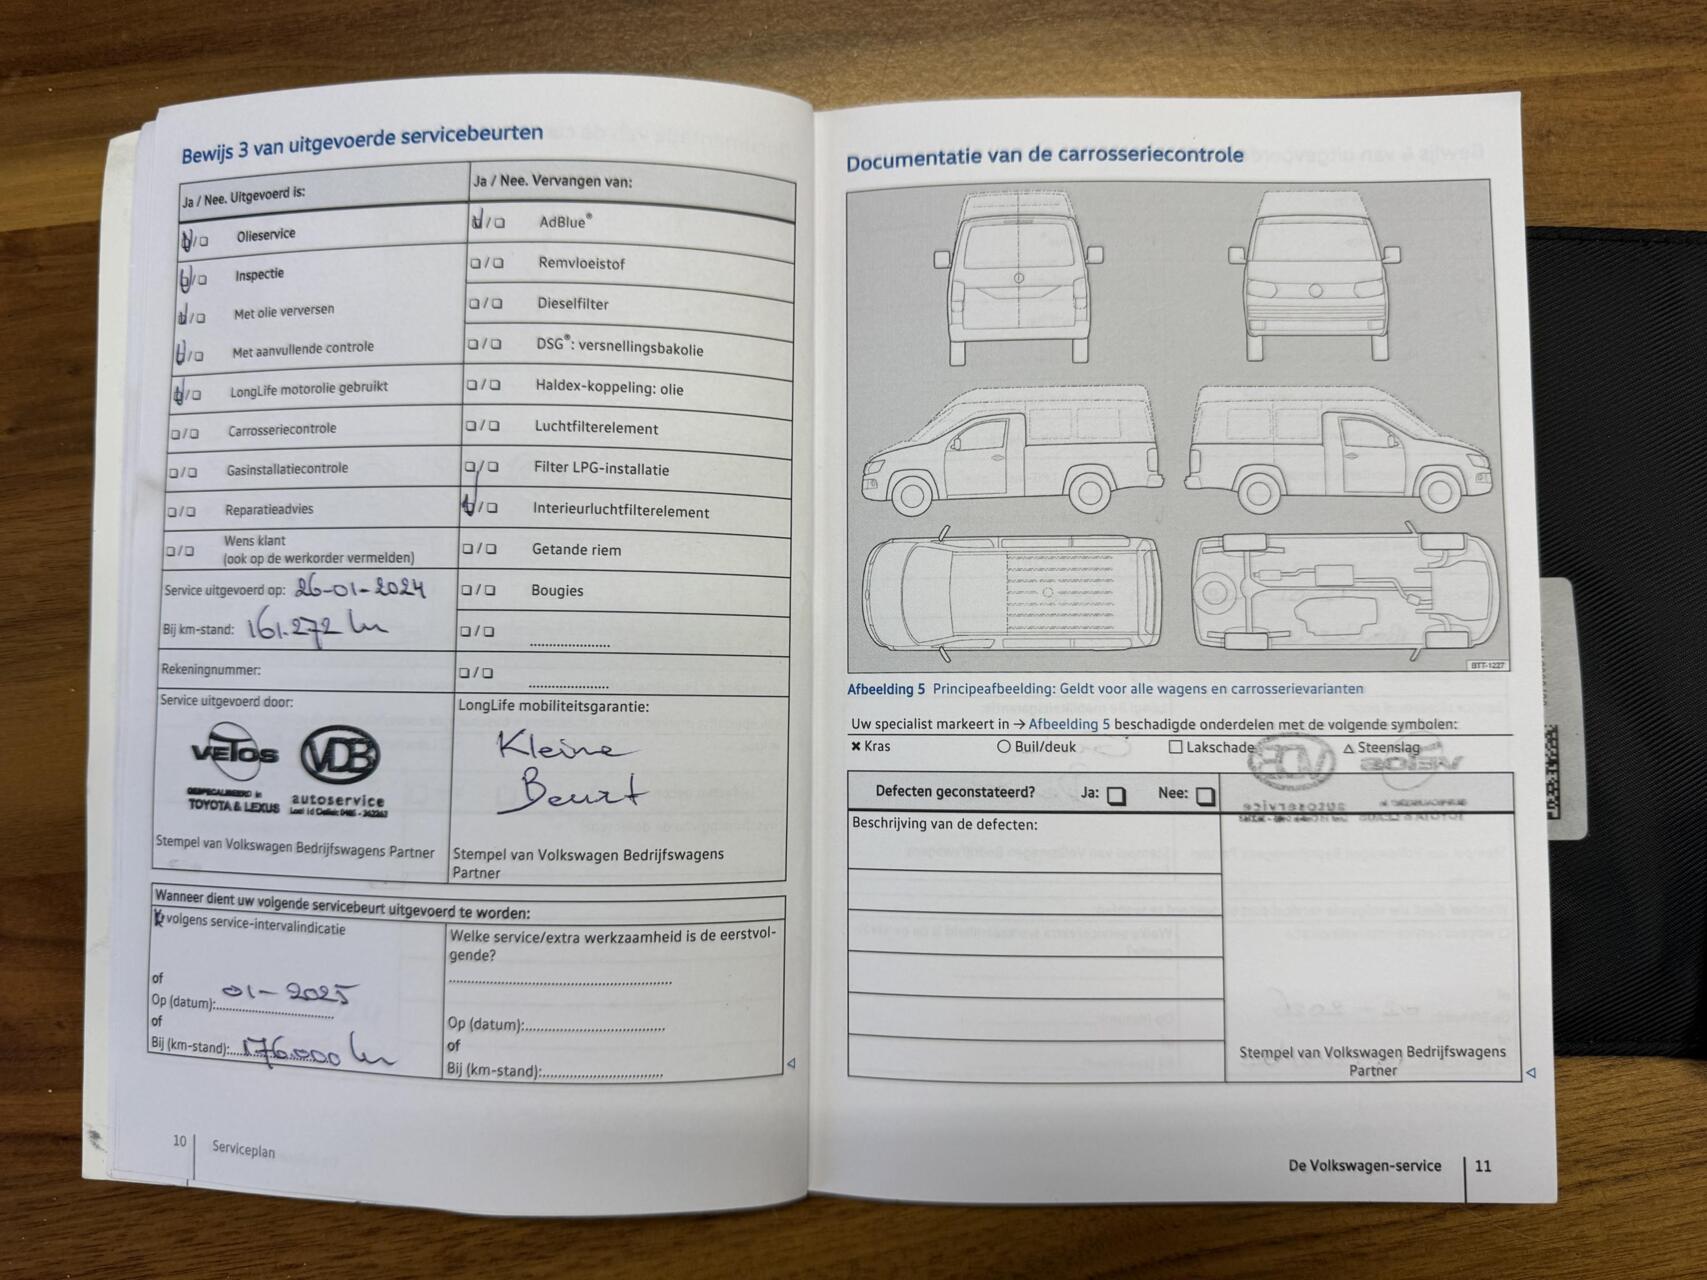 Bewijs 3 van uitgevoerde servicebeurten
Ja / Nee. Uitgevoerd is:
Olieservice
Inspectie
Met olie verversen
Met aanvullende controle
LongLife motorolie gebruikt
Carrosseriecontrole
Gasinstallatiecontrole
Reparatieadvies
Wens klant
(ook op de werkorder vermelden)
Service uitgevoerd op: 26-01-2024
Bij km-stand: 161.272 km
Rekeningnummer:
Service uitgevoerd door:
VETOS VDB
GESPECIALISEERD in
TOYOTA & LEXUS autoservice
Stempel van Volkswagen Bedrijfswagens Partner
Ja / Nee. Vervangen van:
AdBlue®
Remvloeistof
Dieselfilter
DSG®: versnellingsbakolie
Haldex-koppeling: olie
Luchtfilterelement
Filter LPG-installatie
Interieurluchtfilterelement
Getande riem
Bougies
LongLife mobiliteitsgarantie:
Kleine
Beurt
Stempel van Volkswagen Bedrijfswagens
Partner
Wanneer dient uw volgende servicebeurt uitgevoerd te worden:
volgens service-intervalindicatie
of
Op (datum): 01-2025
of
Bij (km-stand): 176.000 km
Welke service/extra werkzaamheid is de eerstvol-
gende?
Op (datum):
of
Bij (km-stand):
10 Serviceplan
Documentatie van de carrosseriecontrole
BTT-1227
Afbeelding 5 Principeafbeelding: Geldt voor alle wagens en carrosserievarianten
Uw specialist markeert in → Afbeelding 5 beschadigde onderdelen met de volgende symbolen:
✖ Kras ○ Buil/deuk □ Lakschade △ Steenslag
Defecten geconstateerd? Ja: Nee:
Beschrijving van de defecten:
Stempel van Volkswagen Bedrijfswagens
Partner
De Volkswagen-service 11